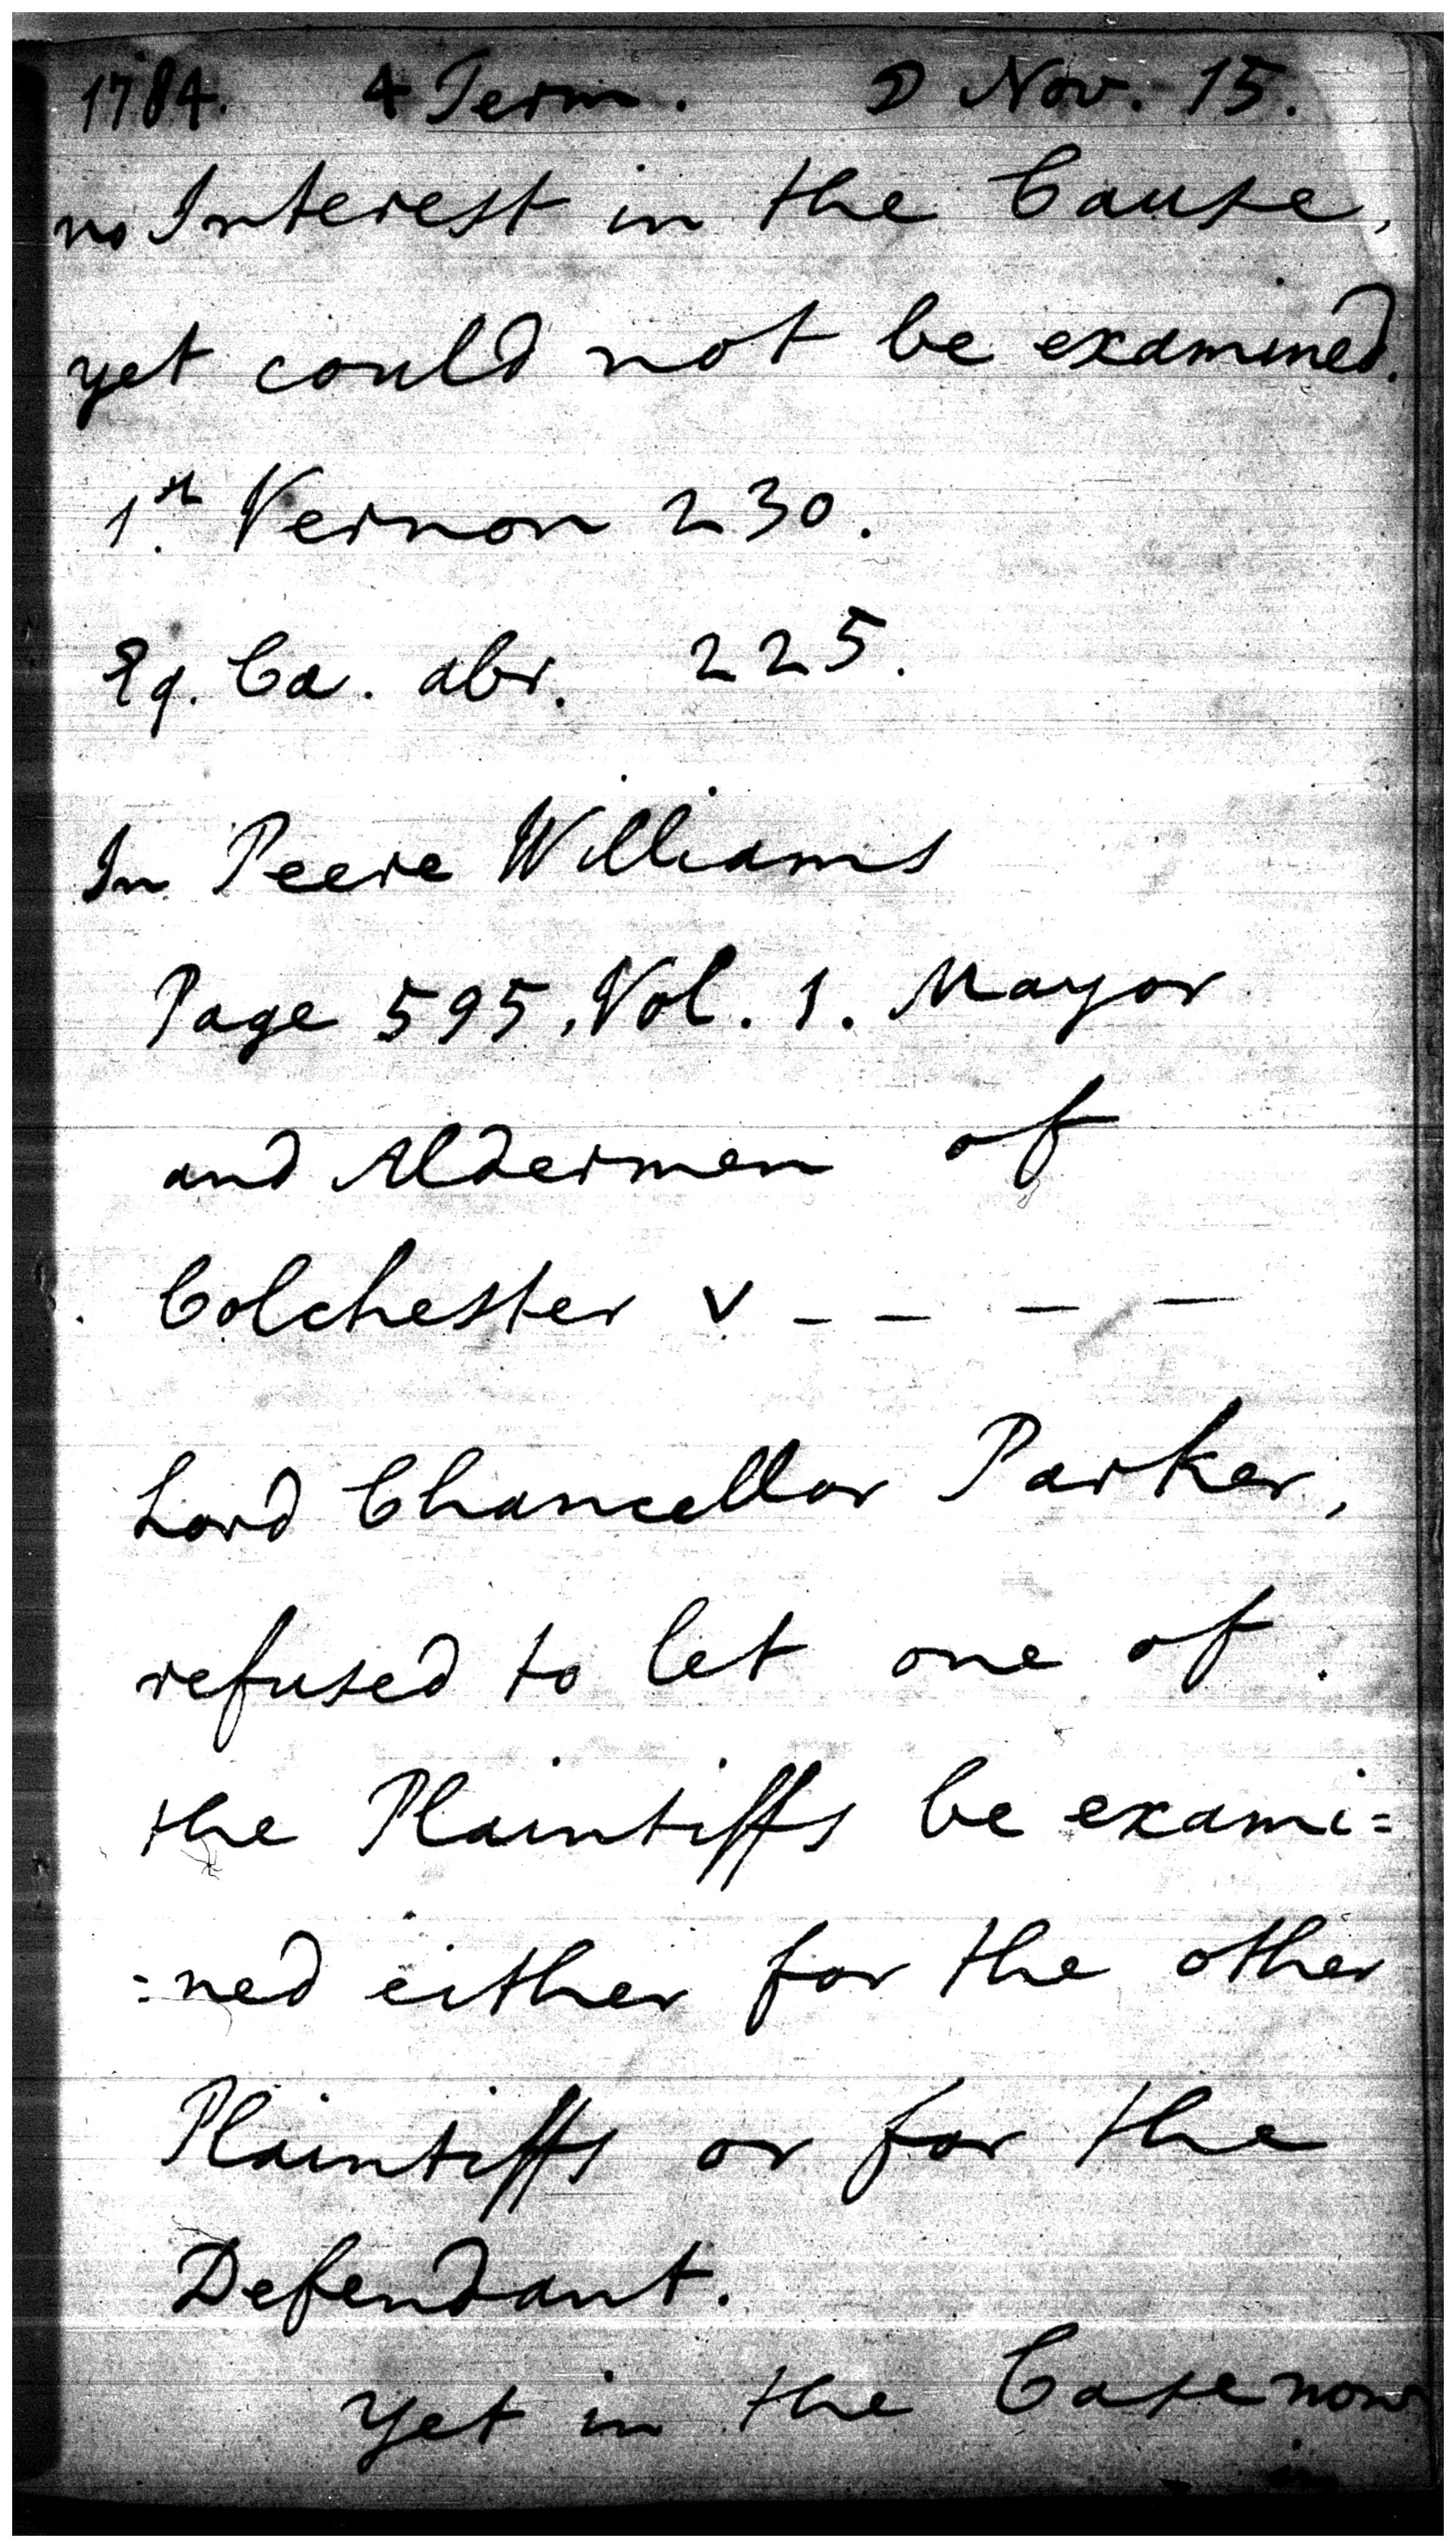 1784. 4 Term. D Nov. 15.
no Interest in the Cause,
yet could not be examined.
1st Vernon 230.
Eq. Ca. abr. 225.
In Peere Williams
Page 595, Vol. 1. Mayor
and Aldermen of
Colchester v _ _ _ _
Lord Chancellor Parker,
refused to let one of
the Plaintiffs be exami=
=ned either for the other
Plaintiffs or for the
Defendant.
Yet in the Case now